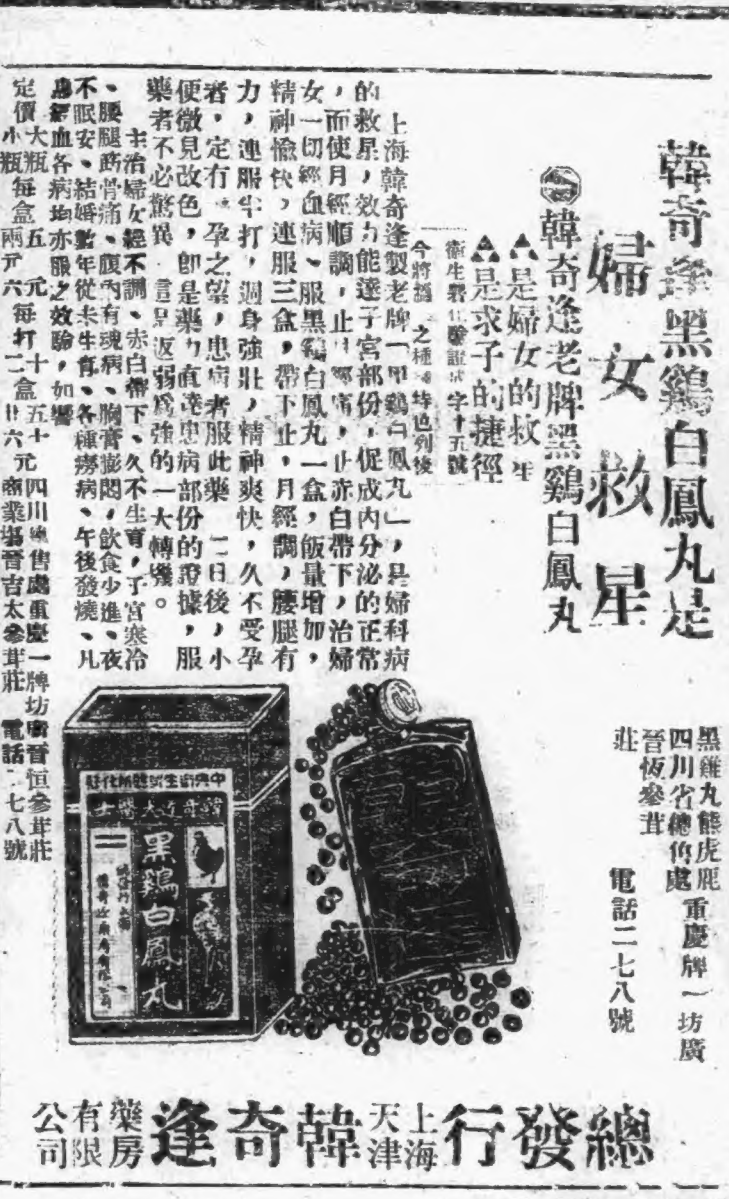 韓奇逢黑鷄白鳳丸是
婦女救星
韓奇逢老牌黑鷄白鳳丸
是婦女的救
是求子的捷徑
字十五號
今將 之種 特色列後
上海韓奇逢製老牌「黑鷄白鳳丸」，是婦科病
的救星，效力能達子宮部份，促成內分泌的正常
，而使月經順調，止 痛，止赤白帶下，治婦
女一切經血病、服黑鷄白鳳丸一盒，飯量增加，
精神愉快，連服三盒，帶下止，月經調，腰腿有
力，連服半打，週身強壯，精神爽快，久不受孕
者，定有 孕之望，患病者服此藥 二日後，小
便微見改色，即是藥力直達患病部份的證據，服
藥者不必驚異 這是返弱爲強的一大轉機。
主治婦女經不調、赤白帶下、久不生育，子宮寒冷
、腰腿 骨痛、腹內有塊病、胸膏膨悶，飲食少進、夜
不眠安、結婚數年從未生育、各種癆病、午後發燒、凡
經血各病均亦服之效驗，如響
定價 大瓶每盒五元 每打十盒五十元
小瓶每盒兩元六 每打二盒廿六元
四川 售處重慶一牌坊廣晉恒參茸莊
商業場晉吉太參茸莊 電話二七八號
黑雞丸熊虎鹿
四川省總售處 重慶牌一坊廣
晉恆參茸
莊 電話二七八號
黑鷄白鳳丸
總發行 上海 天津 韓奇逢 藥房 有限 公司